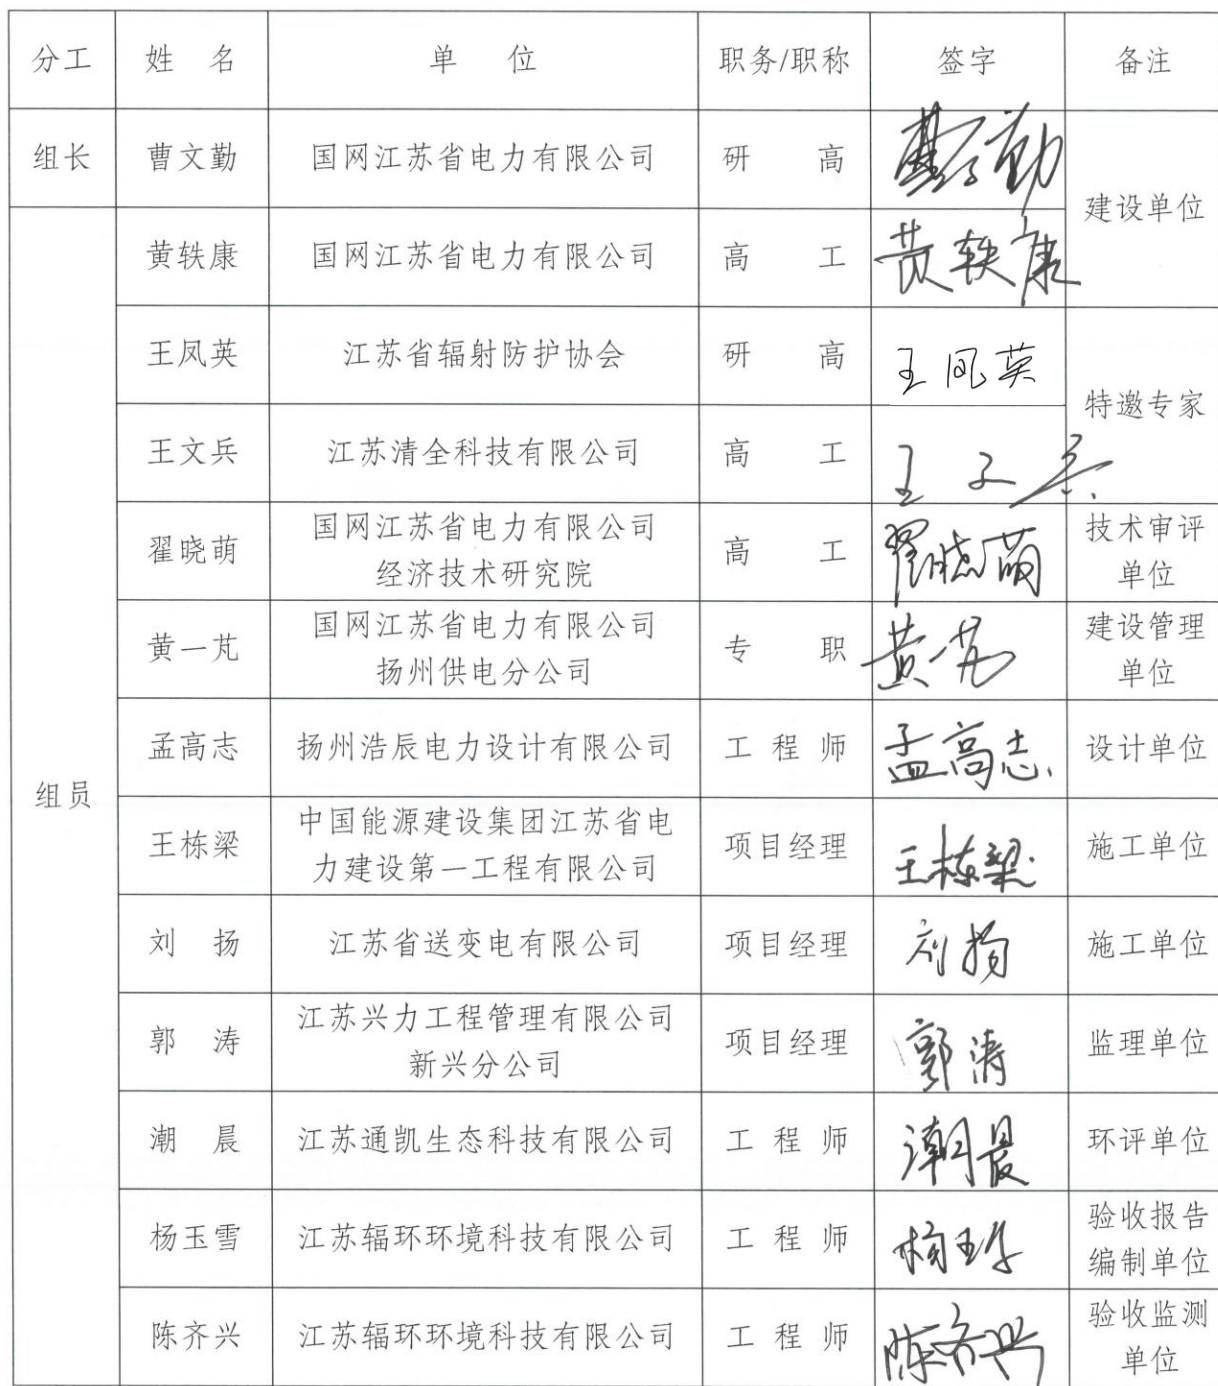 分工 姓 名 单 位 职务/职称 签字 备注
组长 曹文勤 国网江苏省电力有限公司 研 高 曹文勤
建设单位
黄轶康 国网江苏省电力有限公司 高 工 黄轶康
王凤英 江苏省辐射防护协会 研 高 王凤英
特邀专家
王文兵 江苏清全科技有限公司 高 工 王文兵
翟晓萌 国网江苏省电力有限公司
经济技术研究院 高 工 翟晓萌 技术审评
单位
黄一芃 国网江苏省电力有限公司
扬州供电分公司 专 职 黄一芃 建设管理
单位
孟高志 扬州浩辰电力设计有限公司 工 程 师 孟高志 设计单位
组员
王栋梁 中国能源建设集团江苏省电
力建设第一工程有限公司 项目经理 王栋梁 施工单位
刘 扬 江苏省送变电有限公司 项目经理 刘扬 施工单位
郭 涛 江苏兴力工程管理有限公司
新兴分公司 项目经理 郭涛 监理单位
潮 晨 江苏通凯生态科技有限公司 工 程 师 潮晨 环评单位
杨玉雪 江苏辐环环境科技有限公司 工 程 师 杨玉雪 验收报告
编制单位
陈齐兴 江苏辐环环境科技有限公司 工 程 师 陈齐兴 验收监测
单位